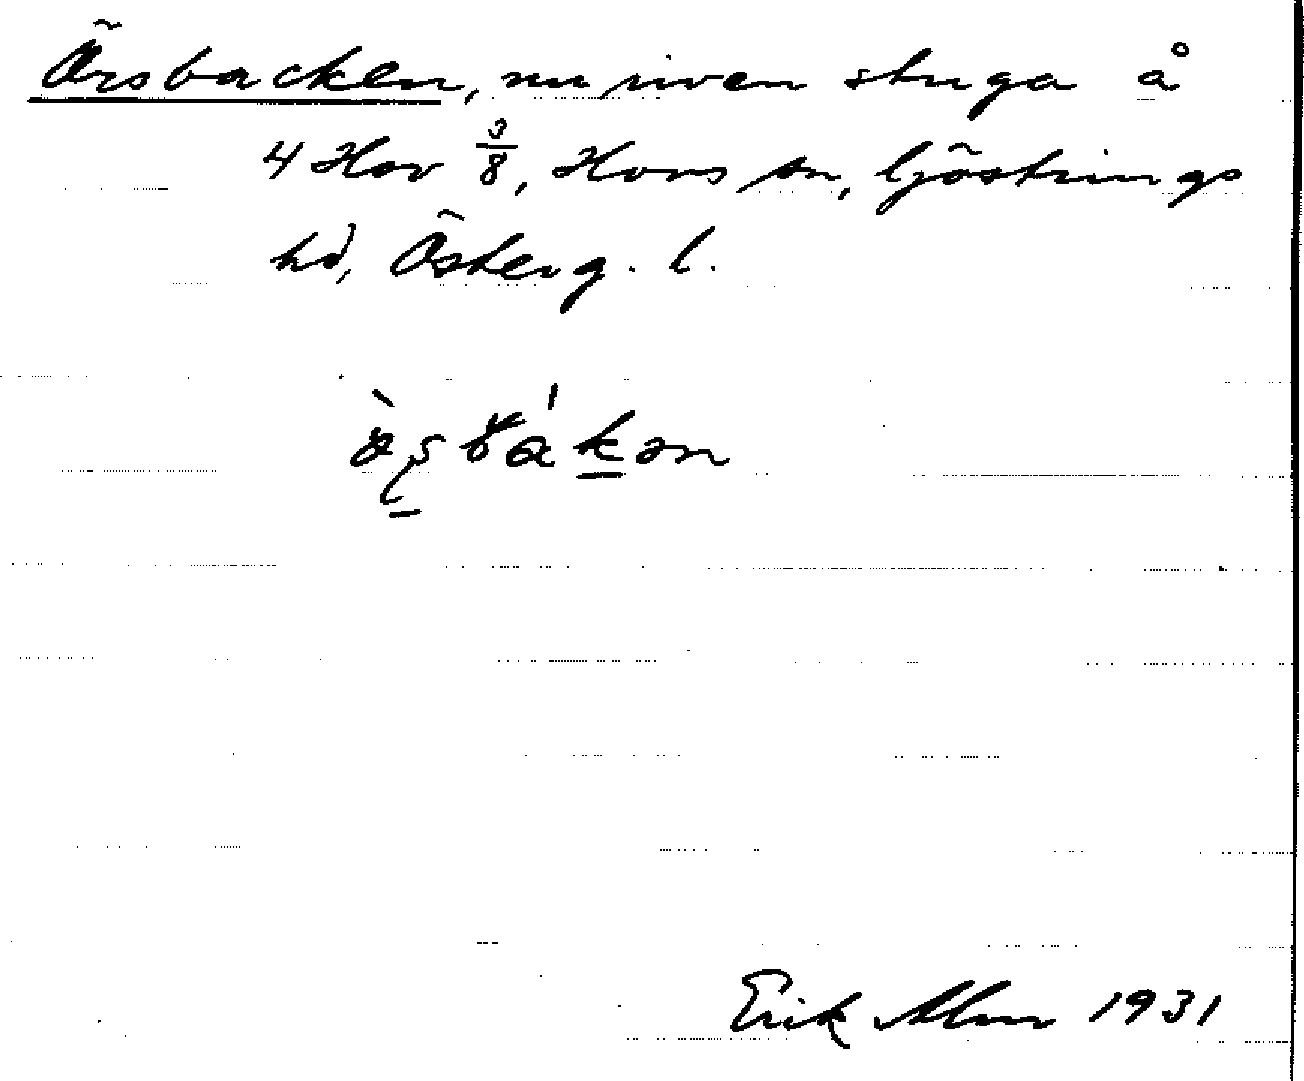 Örsbacken, nu riven stuga å
4 Hov 3/8, Hovs sn, Göstrings
hd, Österg. l.
Erik Alm 1931